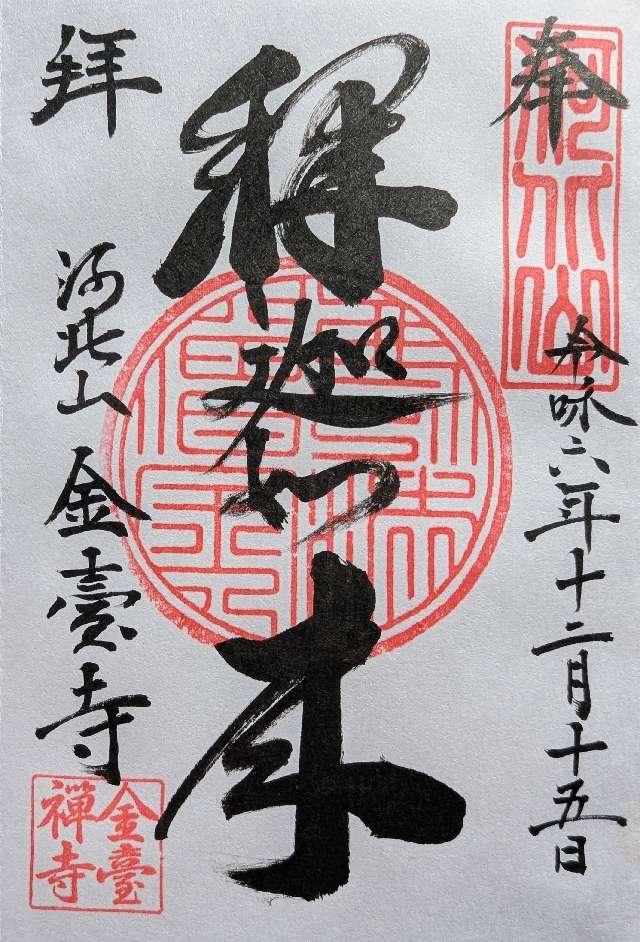 奉
令和六年十二月十五日
釋迦如来
拝
河北山
金臺寺
河北山
金臺
禅寺